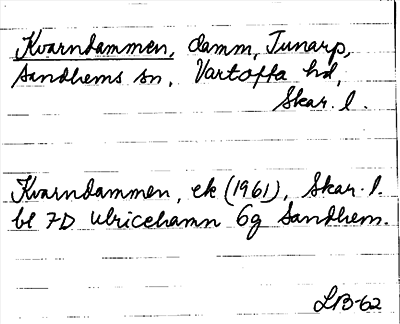 Kvarndammen, damm, Tunarp,
Sandhems sn, Vartofta hd,
Skar. l.
Kvarndammen, ek (1961), Skar. l.
bl 7D Ulricehamn 6g Sandhem.
LB-62